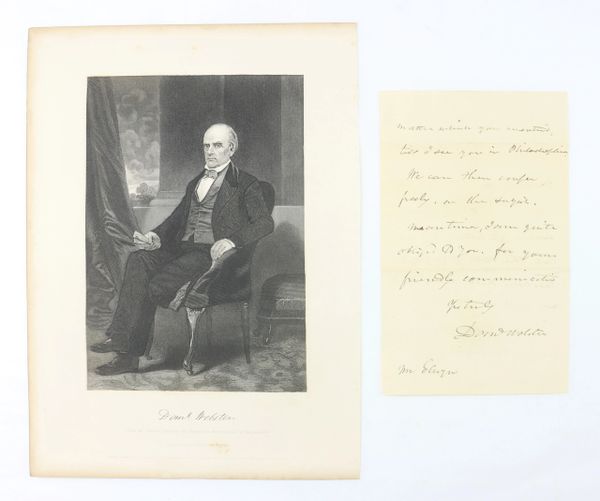 Danl. Webster
matter which you mention,
till I see you in Philadelphia
We can then confer
freely, on the subject.
Meantime, I am quite
obliged to you, for your
friendly communication
Yrs truly
Danl Webster
Mr